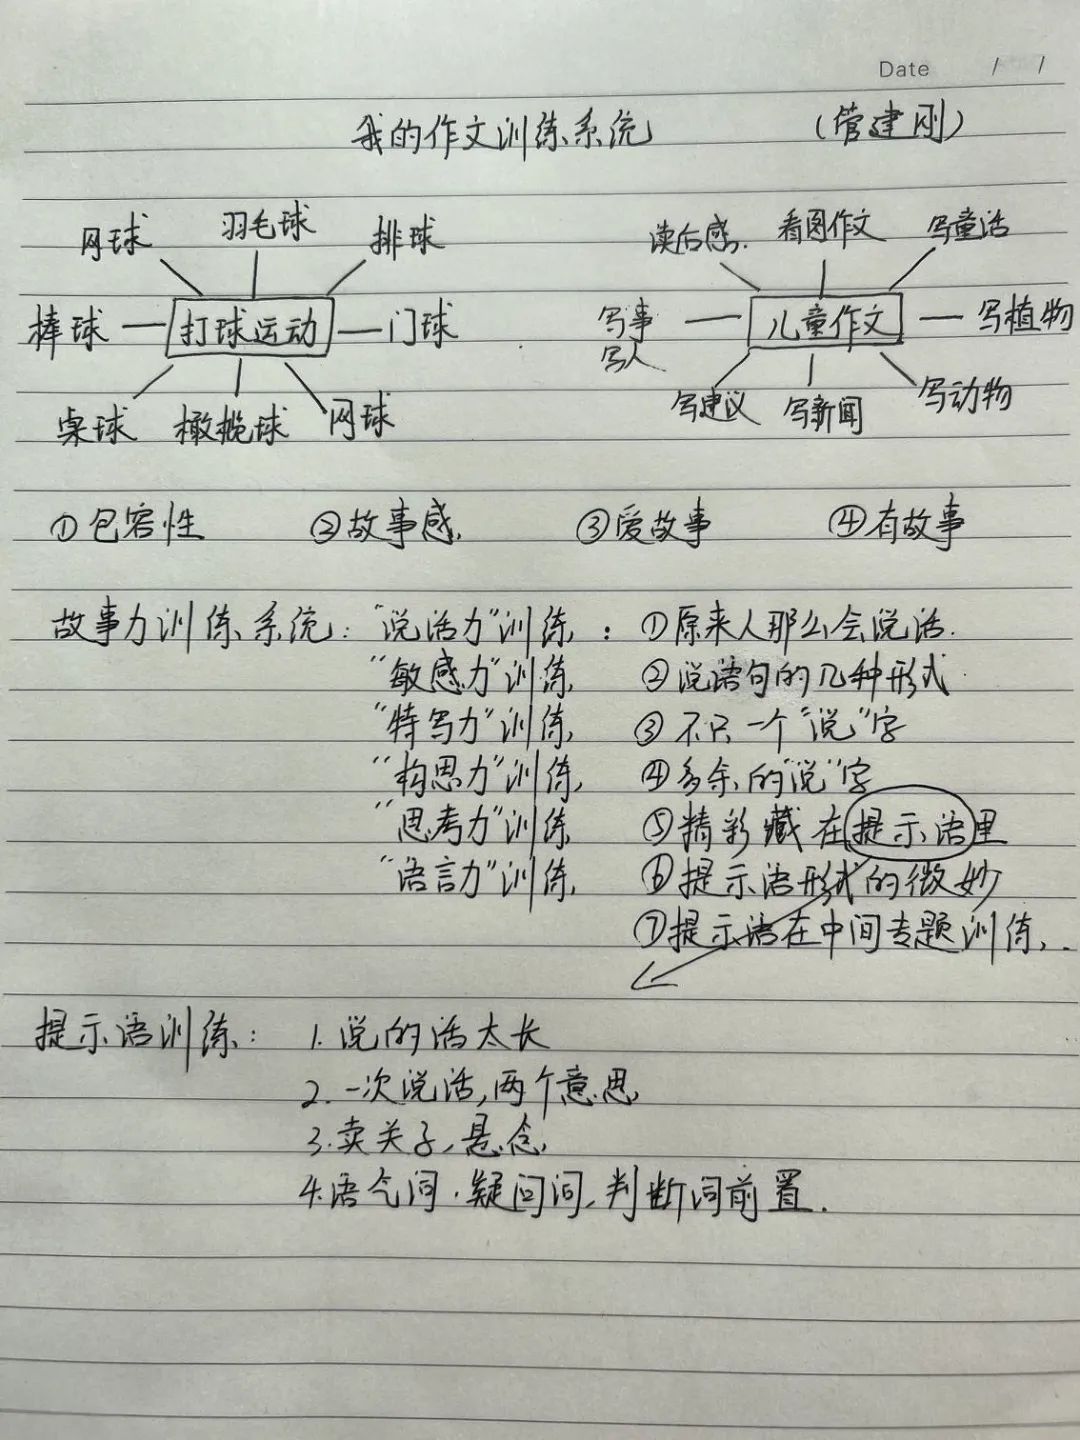 Date / /
我的作文训练系统 (管建刚)
网球 羽毛球 排球 读后感. 看图作文 写童话
棒球 打球运动 门球 写事 儿童作文 写植物
写人
桌球 橄榄球 网球 写建议 写新闻 写动物
①包容性 ②故事感. ③爱故事 ④有故事
故事力训练系统: "说话力"训练: ①原来人那么会说话.
"敏感力"训练 ②说话句的几种形式
"特写力"训练 ③不只一个"说"字
"构思力"训练 ④多余的"说"字
"思考力"训练 ⑤精彩藏在提示语里
"语言力"训练 ⑥提示语形式的微妙
⑦提示语在中间专题训练.
提示语训练: 1.说的话太长
2.一次说话,两个意思
3.卖关子,悬念
4.语气词.疑问词,判断词前置.